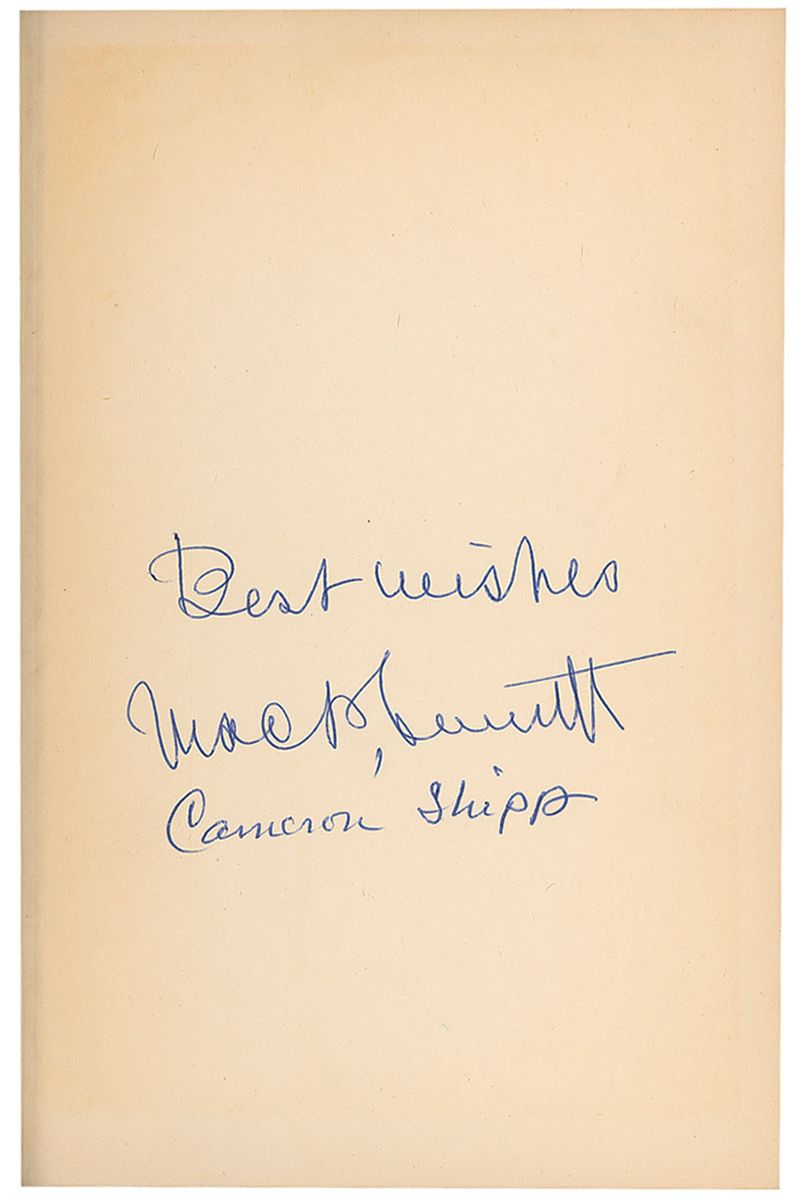 Best wishes
Mack Sennett
Cameron Shipp